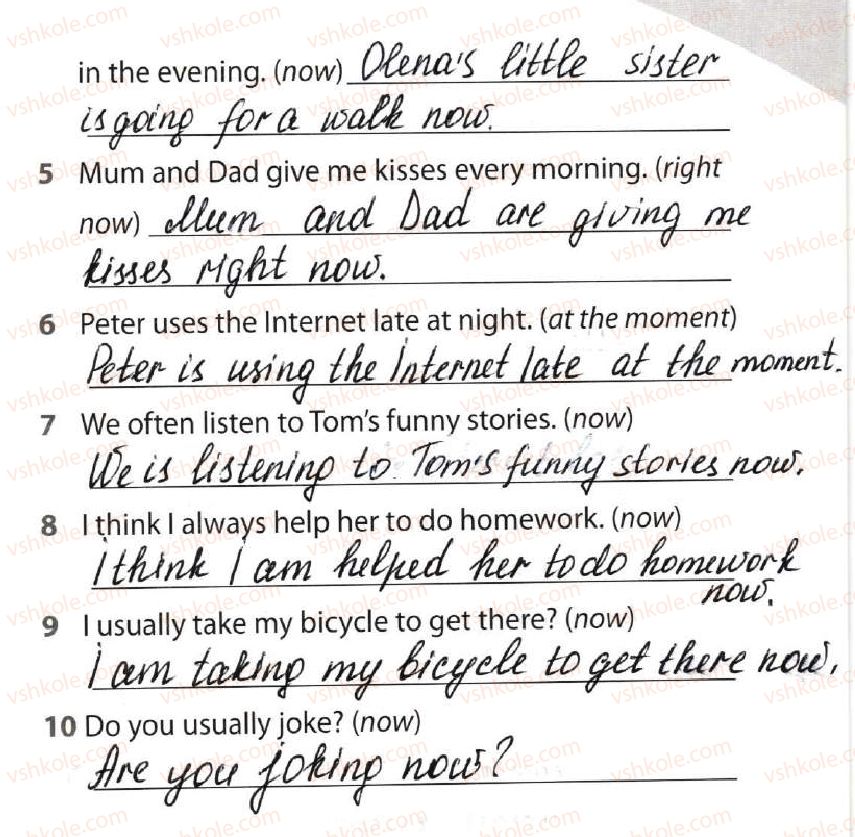 in the evening. (now) Olena's little sister
is going for a walk now.
5 Mum and Dad give me kisses every morning. (right
now) Mum and Dad are giving me
kisses right now.
6 Peter uses the Internet late at night. (at the moment)
Peter is using the Internet late at the moment.
7 We often listen to Tom's funny stories. (now)
We is listening to Tom's funny stories now.
8 I think I always help her to do homework. (now)
I think I am helped her to do homework
now.
9 I usually take my bicycle to get there? (now)
I am taking my bicycle to get there now.
10 Do you usually joke? (now)
Are you joking now?